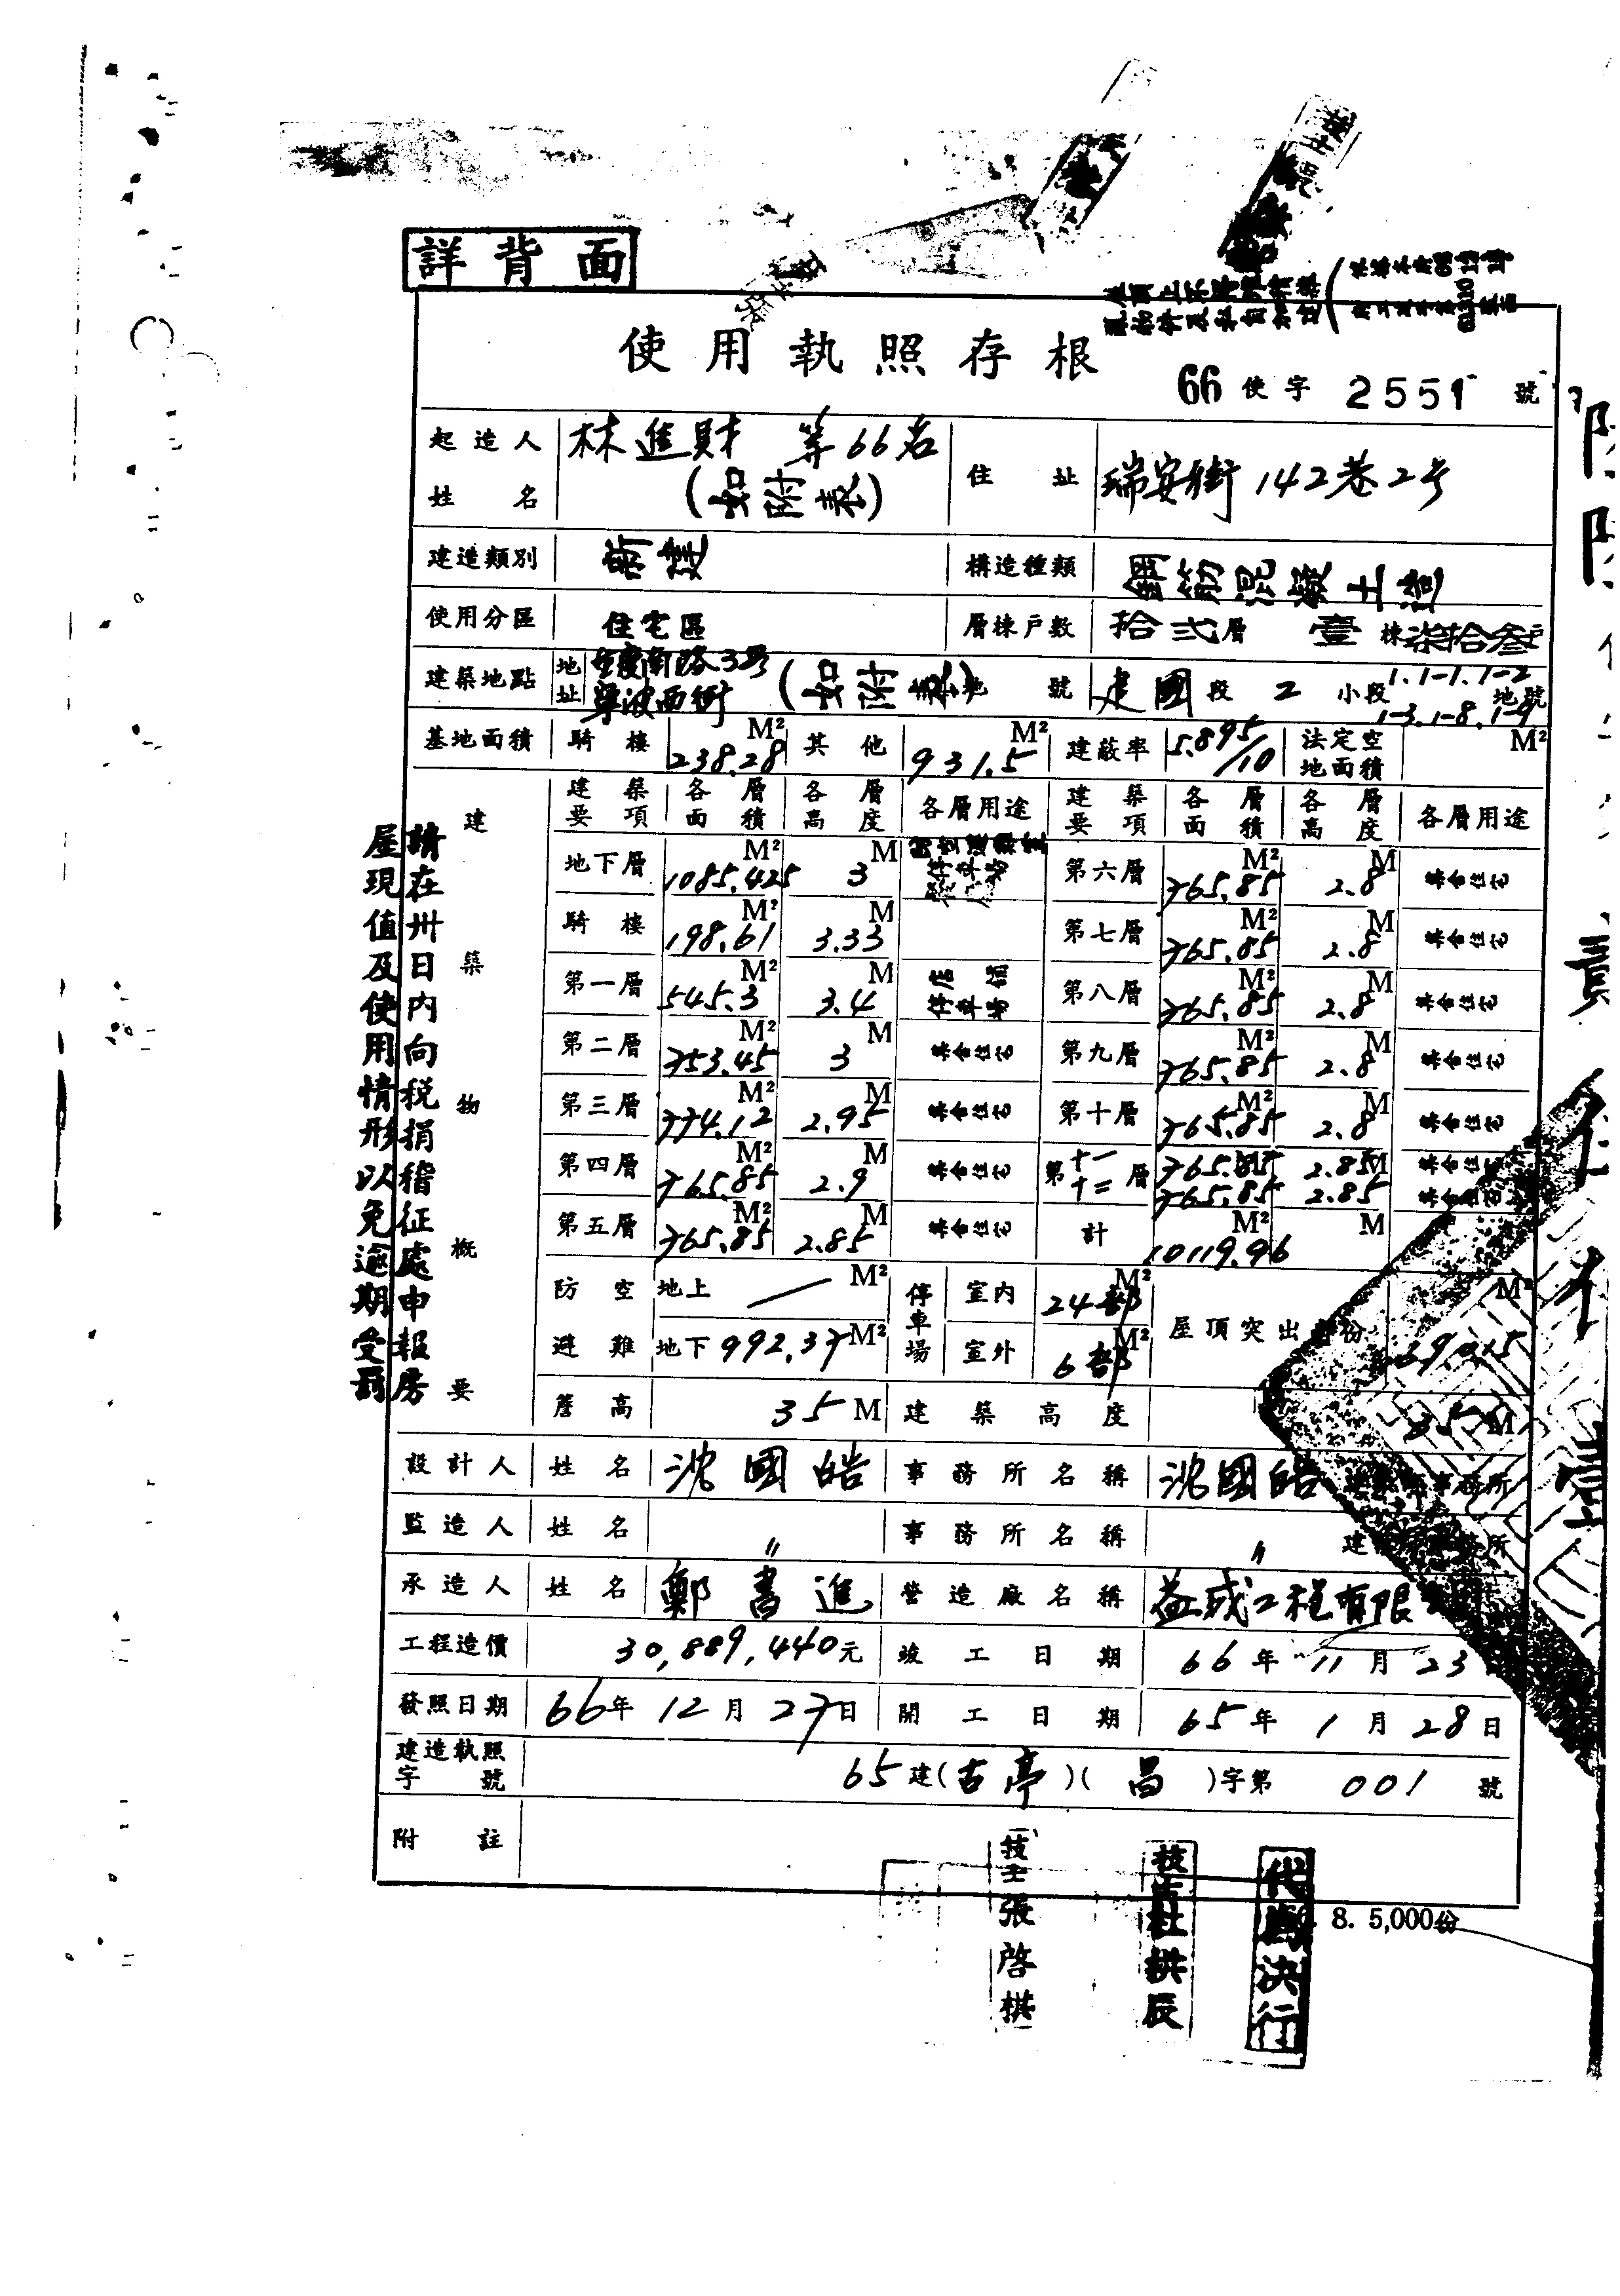 詳背面
使用執照存根
66 使字 2551 號
起造人姓名 林進財 等66名 (如附表) 住址 瑞安街142巷2号
建造類別 新建 構造種類 鋼筋混凝土造
使用分區 住宅區 層棟戶數 拾弍層 壹棟柒拾叁戶
建築地點 地址 重慶南路3号 寧波西街 (如附表) 地號 建國段 2 小段 1.1-1.1-2 1-3.1-8.1-9 地號
基地面積 騎樓 238.28 M² 其他 931.5 M² 建蔽率 5.895/10 法定空地面積 M²
建築物概要
建築要項 各層面積 各層高度 各層用途 建築要項 各層面積 各層高度 各層用途
地下層 1085.425 M² 3 M 停車場 第六層 765.85 M² 2.8 M 集合住宅
騎樓 198.61 M² 3.33 M 第七層 765.85 M² 2.8 M 集合住宅
第一層 545.3 M² 3.4 M 店舖 停車場 第八層 765.85 M² 2.8 M 集合住宅
第二層 753.45 M² 3 M 集合住宅 第九層 765.85 M² 2.8 M 集合住宅
第三層 774.12 M² 2.95 M 集合住宅 第十層 765.85 M² 2.8 M 集合住宅
第四層 765.85 M² 2.9 M 集合住宅 第十一 十二層 765.85 M² 2.85 M 集合住宅
765.85 2.85 集合住宅
第五層 765.85 M² 2.85 M 集合住宅 計 10119.96 M² M
防空避難 地上 M² 停車場 室內 24部 M² 屋頂突出部份 M²
地下 992.37 M² 室外 6部 M²
簷高 35 M 建築高度 35 M
設計人 姓名 沈國皓 事務所名稱 沈國皓 建築師事務所
監造人 姓名 〃 事務所名稱 〃 建築師事務所
承造人 姓名 鄭書進 營造廠名稱 益成工程有限
工程造價 30,889,440元 竣工日期 66年11月23
發照日期 66年12月27日 開工日期 65年1月28日
建造執照字號 65建(古亭)(昌)字第001號
附註
請在卅日內向稅捐稽征處申報房
屋現值及使用情形以免逾期受罰
8. 5,000份
技士張啓棋
技正杜拱辰
代為決行